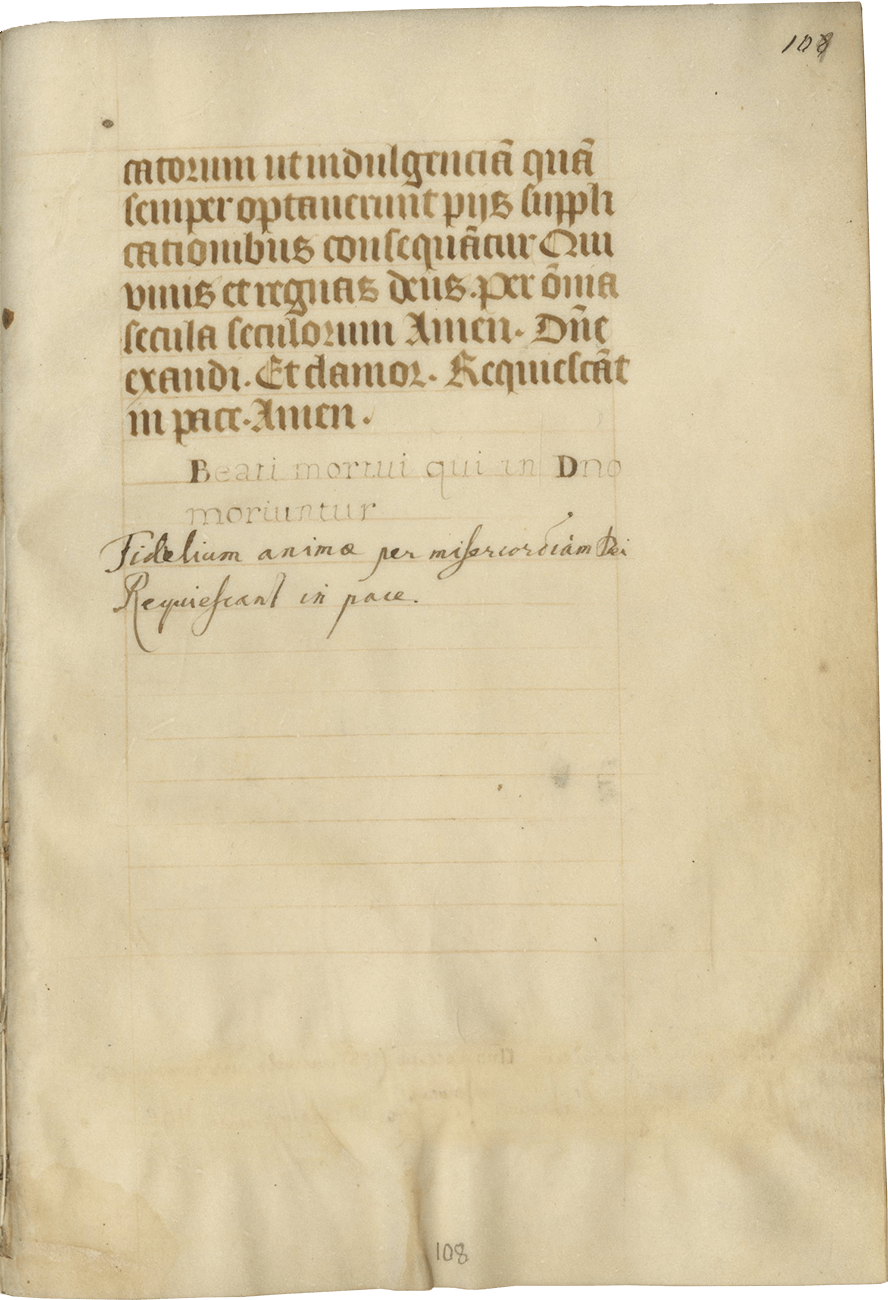 108
catorum ut indulgenciā quā
semper optauerunt pijs suppli
cationibus consequātur Qui
viuis et regnas deus. Per ōnia
secula seculorum Amen. Dn̄e
exaudi. Et clamor. Requiescāt
in pace. Amen.
Beati mortui qui in Dno
moriuntur
Fidelium animæ per misericordiam Dei
Requiescant in pace.
108